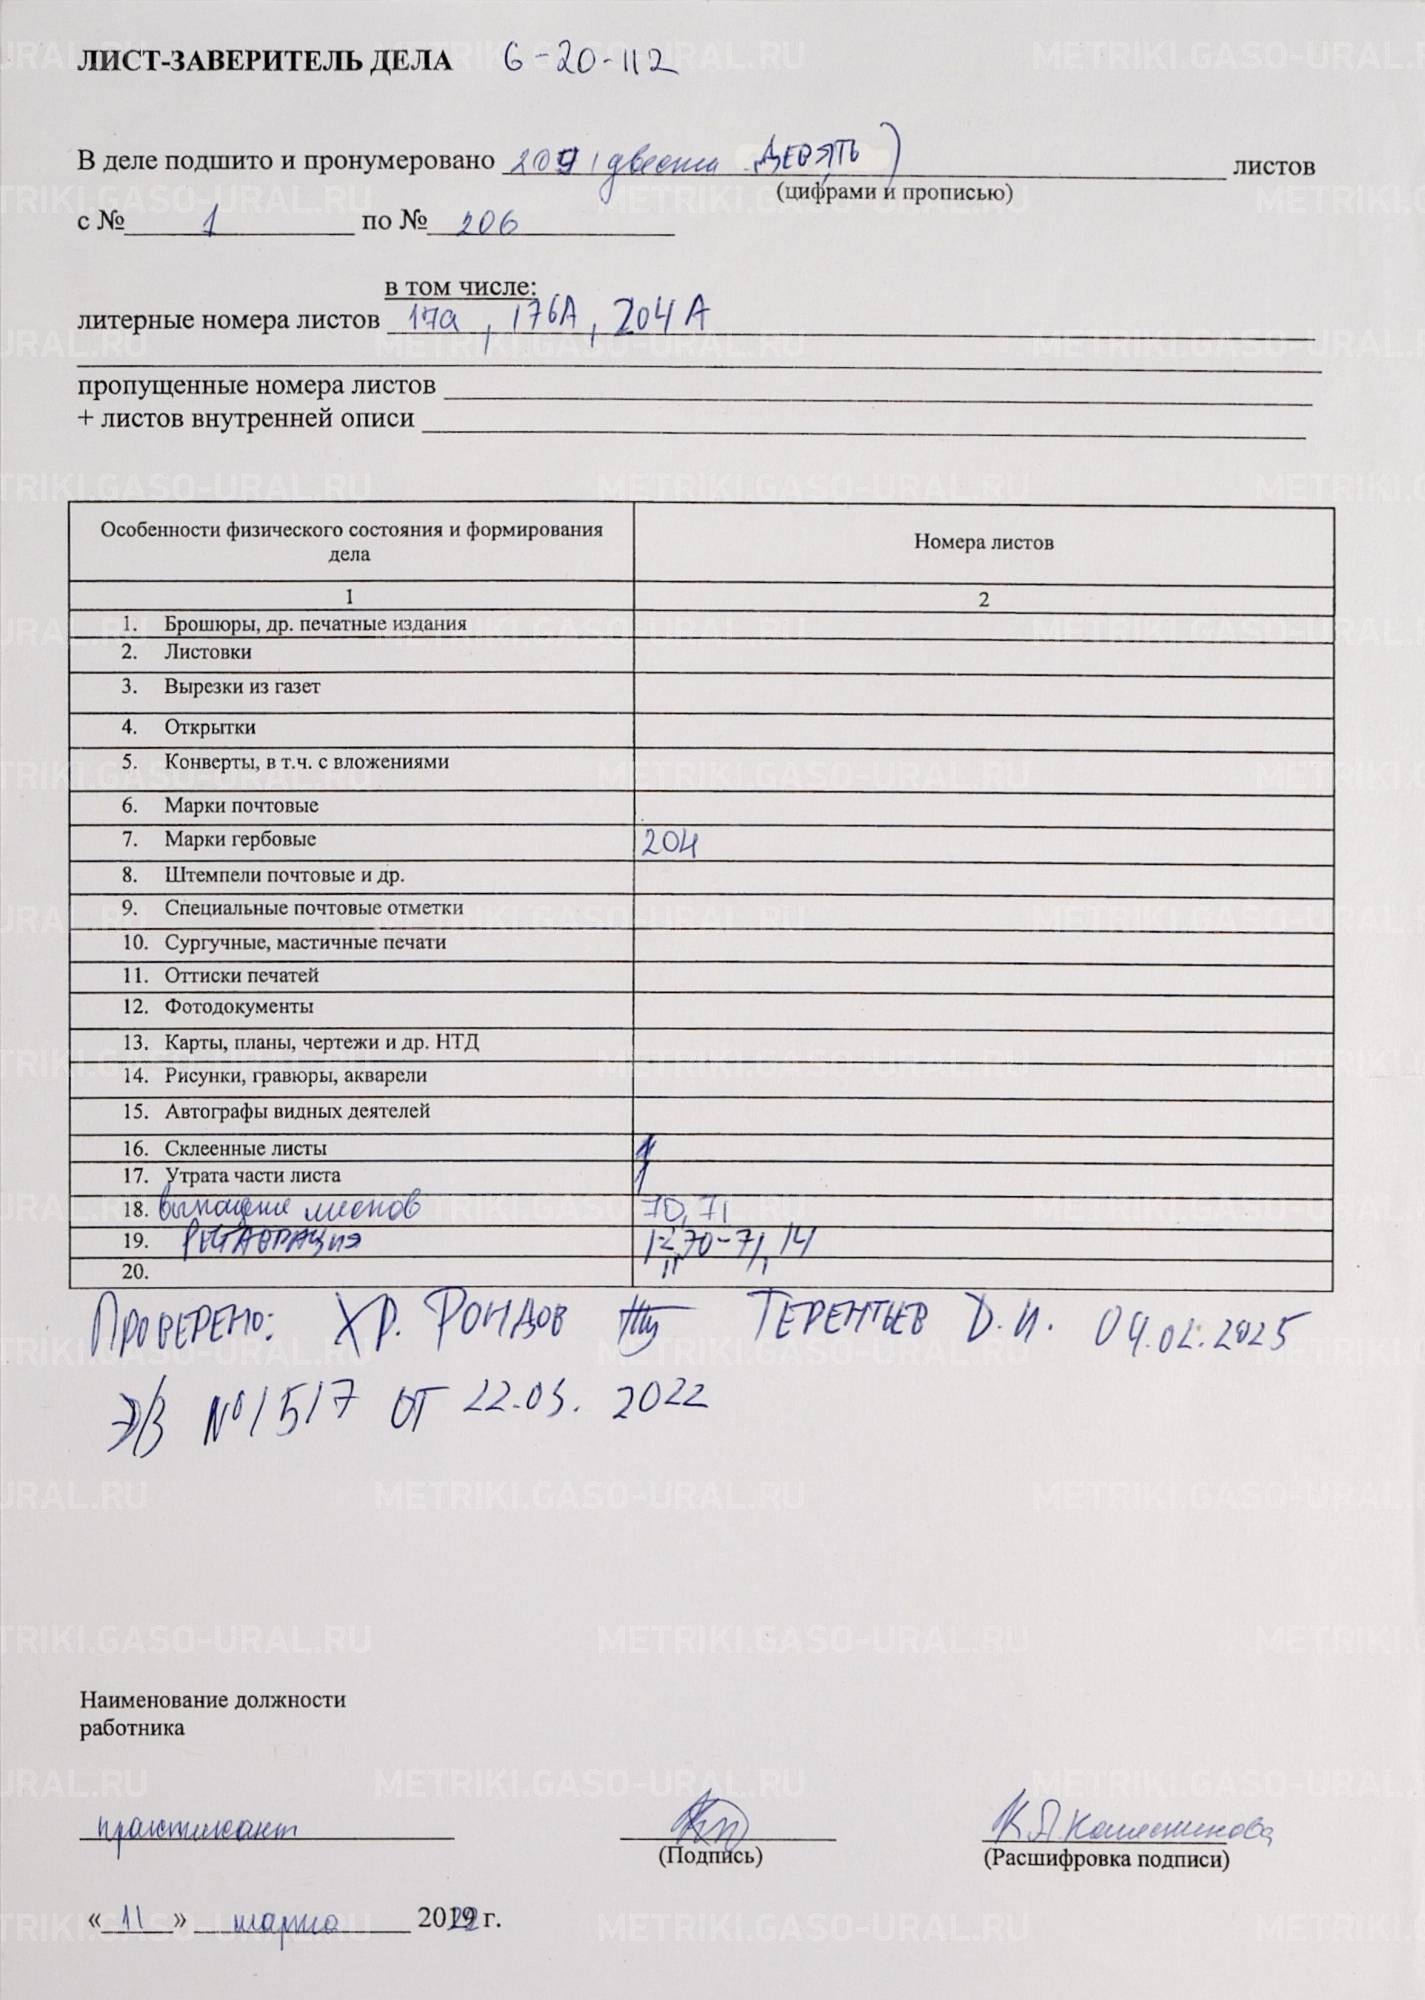 ЛИСТ-ЗАВЕРИТЕЛЬ ДЕЛА 6-20-112
В деле подшито и пронумеровано 209 (двести ДЕВЯТЬ) листов
(цифрами и прописью)
с № 1 по № 206
в том числе:
литерные номера листов 17а, 176А, 204А
пропущенные номера листов
+ листов внутренней описи
Особенности физического состояния и формирования дела Номера листов
1 2
1. Брошюры, др. печатные издания
2. Листовки
3. Вырезки из газет
4. Открытки
5. Конверты, в т.ч. с вложениями
6. Марки почтовые
7. Марки гербовые 204
8. Штемпели почтовые и др.
9. Специальные почтовые отметки
10. Сургучные, мастичные печати
11. Оттиски печатей
12. Фотодокументы
13. Карты, планы, чертежи и др. НТД
14. Рисунки, гравюры, акварели
15. Автографы видных деятелей
16. Склеенные листы
17. Утрата части листа 1
18. выпадение листов 70, 71
19. РЕСТАВРАЦИЯ 1-2, 70-71, 14
20.
ПРОВЕРЕНО: ХР. ФОНДОВ ТЕРЕНТЬЕВ Д.И. 04.02.2025
Э/З № 1517 ОТ 22.03.2022
Наименование должности
работника
практикант К.А. Колесникова
(Подпись) (Расшифровка подписи)
« 11 » марта 2022 г.
METRIKI.GASO-URAL.RU